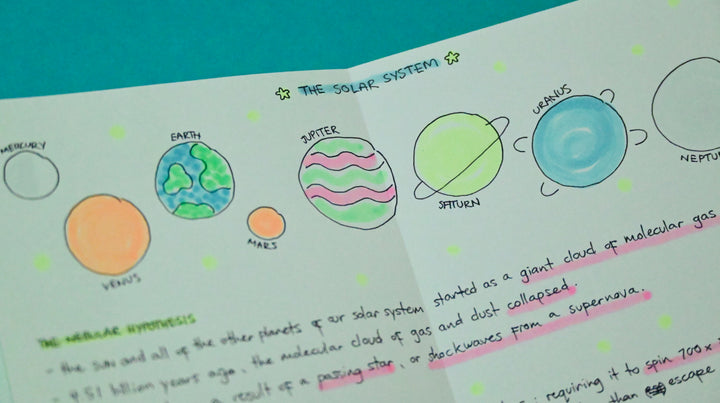 THE SOLAR SYSTEM
MERCURY
VENUS
EARTH
MARS
JUPITER
SATURN
URANUS
NEPTU
THE NEBULAR HYPOTHESIS
- the sun and all of the other planets of our solar system started as a giant cloud of molecular gas
- 4.51 billion years ago, the molecular cloud of gas and dust collapsed.
a result of a passing star, or shockwaves from a supernova.
; requiring it to spin 700x
than escape